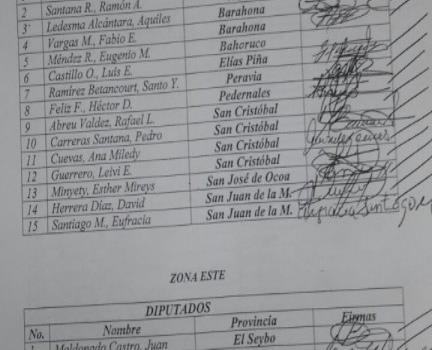 2 Santana R., Ramón A.
3 Ledesma Alcántara, Aquiles Barahona
4 Vargas M., Fabio E. Barahona
5 Méndez R., Eugenio M. Bahoruco
6 Castillo O., Luis E. Elías Piña
7 Ramírez Betancourt, Santo Y. Peravia
8 Feliz F., Héctor D. Pedernales
9 Abreu Valdez, Rafael L. San Cristóbal
10 Carreras Santana, Pedro San Cristóbal
11 Cuevas, Ana Miledy San Cristóbal
12 Guerrero, Leivi E. San Cristóbal
13 Minyety, Esther Mireys San José de Ocoa
14 Herrera Díaz, David San Juan de la M.
15 Santiago M., Eufracia San Juan de la M.
ZONA ESTE
DIPUTADOS
No. Nombre Provincia Firmas
Maldonado Castro, Juan El Seybo